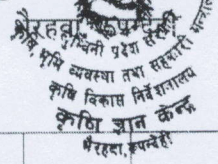 लुम्बिनी प्रदेश सरकार
कृषि भूमि व्यवस्था तथा सहकारी मन्त्रालय
कृषि विकास निर्देशनालय
कृषि ज्ञान केन्द्र
भैरहवा, रुपन्देही